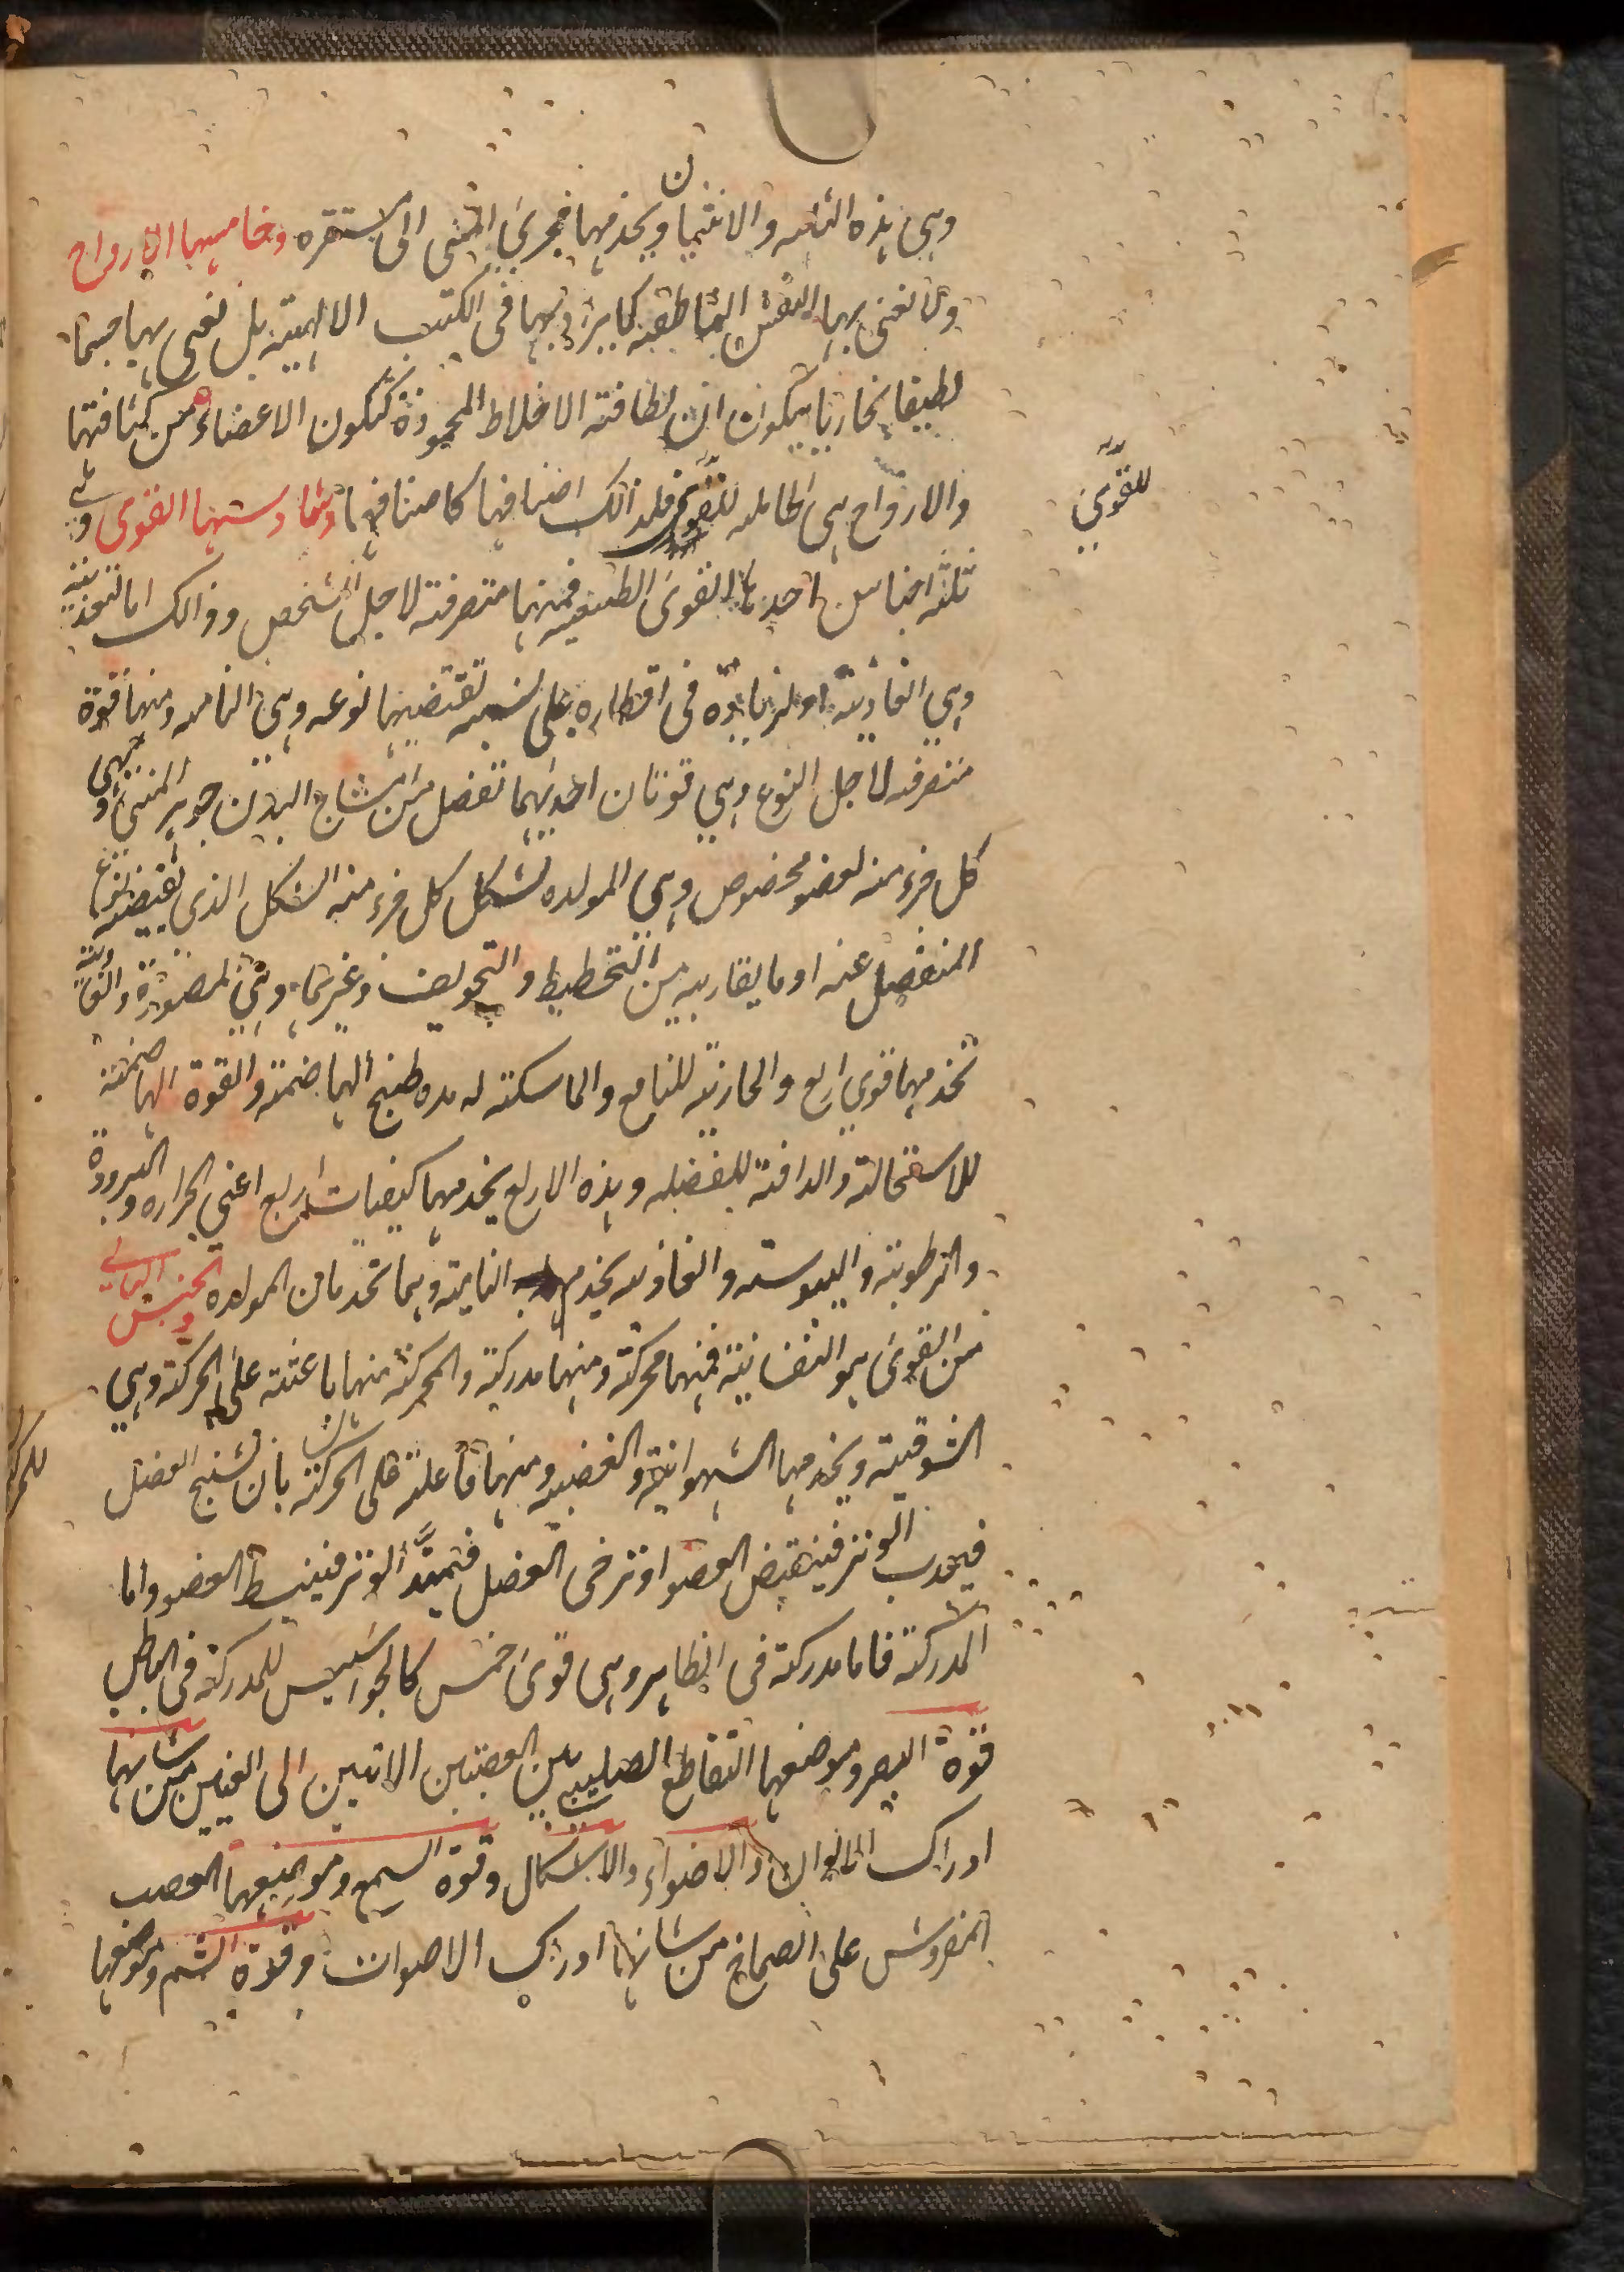 وهي هذه الثلثه والانثيان ويخدمها مجري المني الى مستقره وخامسها الارواح
ولا نعني بها النفس الناطقة كما يراد بها في الكتب الالهية بل نعني بها جسما
لطيفا بخاريا يتكون من لطافة الاخلاط المحمودة كتكون الاعضاء من كثافتها
والارواح هي الحاملة للقوى فلذالك اصنافها كاصنافها وسادستها القوى وهي
ثلثه اجناس احدها القوى الطبيعيه فمنها متصرفة لاجل الشخص وذالك اما لتغذيته
وهي الغاذية او لزيادة في اقطاره على نسبه تقتضيها نوعه وهي الناميه ومنها قوة
متصرفه لاجل النوع وهي قوتان احديهما تفصل من امشاج البدن جوهر المني وتهيي
كل جزء منه لعضو مخصوص وهي المولده تشكل كل جزء منه الشكل الذي يقتضيه نوع
المنفصل عنه او ما يقاربه من التخطيط والتجويف وغيرها وهي المصورة والغاذية
تخدمها قوى اربع والجاذبة للنافع والماسكة له مده طبخ الهاضمة والقوة الهاضمة
للاستحالة والدافعة للفضله وهذه الاربع يخدمها كيفيات اربع اعني الحراره والبرودة
والرطوبة واليبوسة والغاذيه يخدمها النامية وهما تخدمان المولده والجنس الثاني
من القوى هو النفسانية فمنها محركة ومنها مدركة والمحركة منها باعثة على الحركة وهي
الشوقية ويخدمها الشهوانية والغضبيه ومنها فاعلة على الحركة بان تشنج العضل
فيجذب الوتر فينقبض العضو او ترخى العضل فتمتد الوتر فينبسط العضو واما
المدركة فاما مدركة في الظاهر وهي قوى خمس كالجواسيس للمدركة في الباطن
قوة البصر وموضعها التقاطع الصليبي بين العصبتين الاتيتين الى العينين من شانها
ادراك الالوان والاضواء والاشكال وقوة السمع وموضعها العصب
المفروش على الصماخ من شانها ادراك الاصوات وقوة الشم وموضعها
للقوى